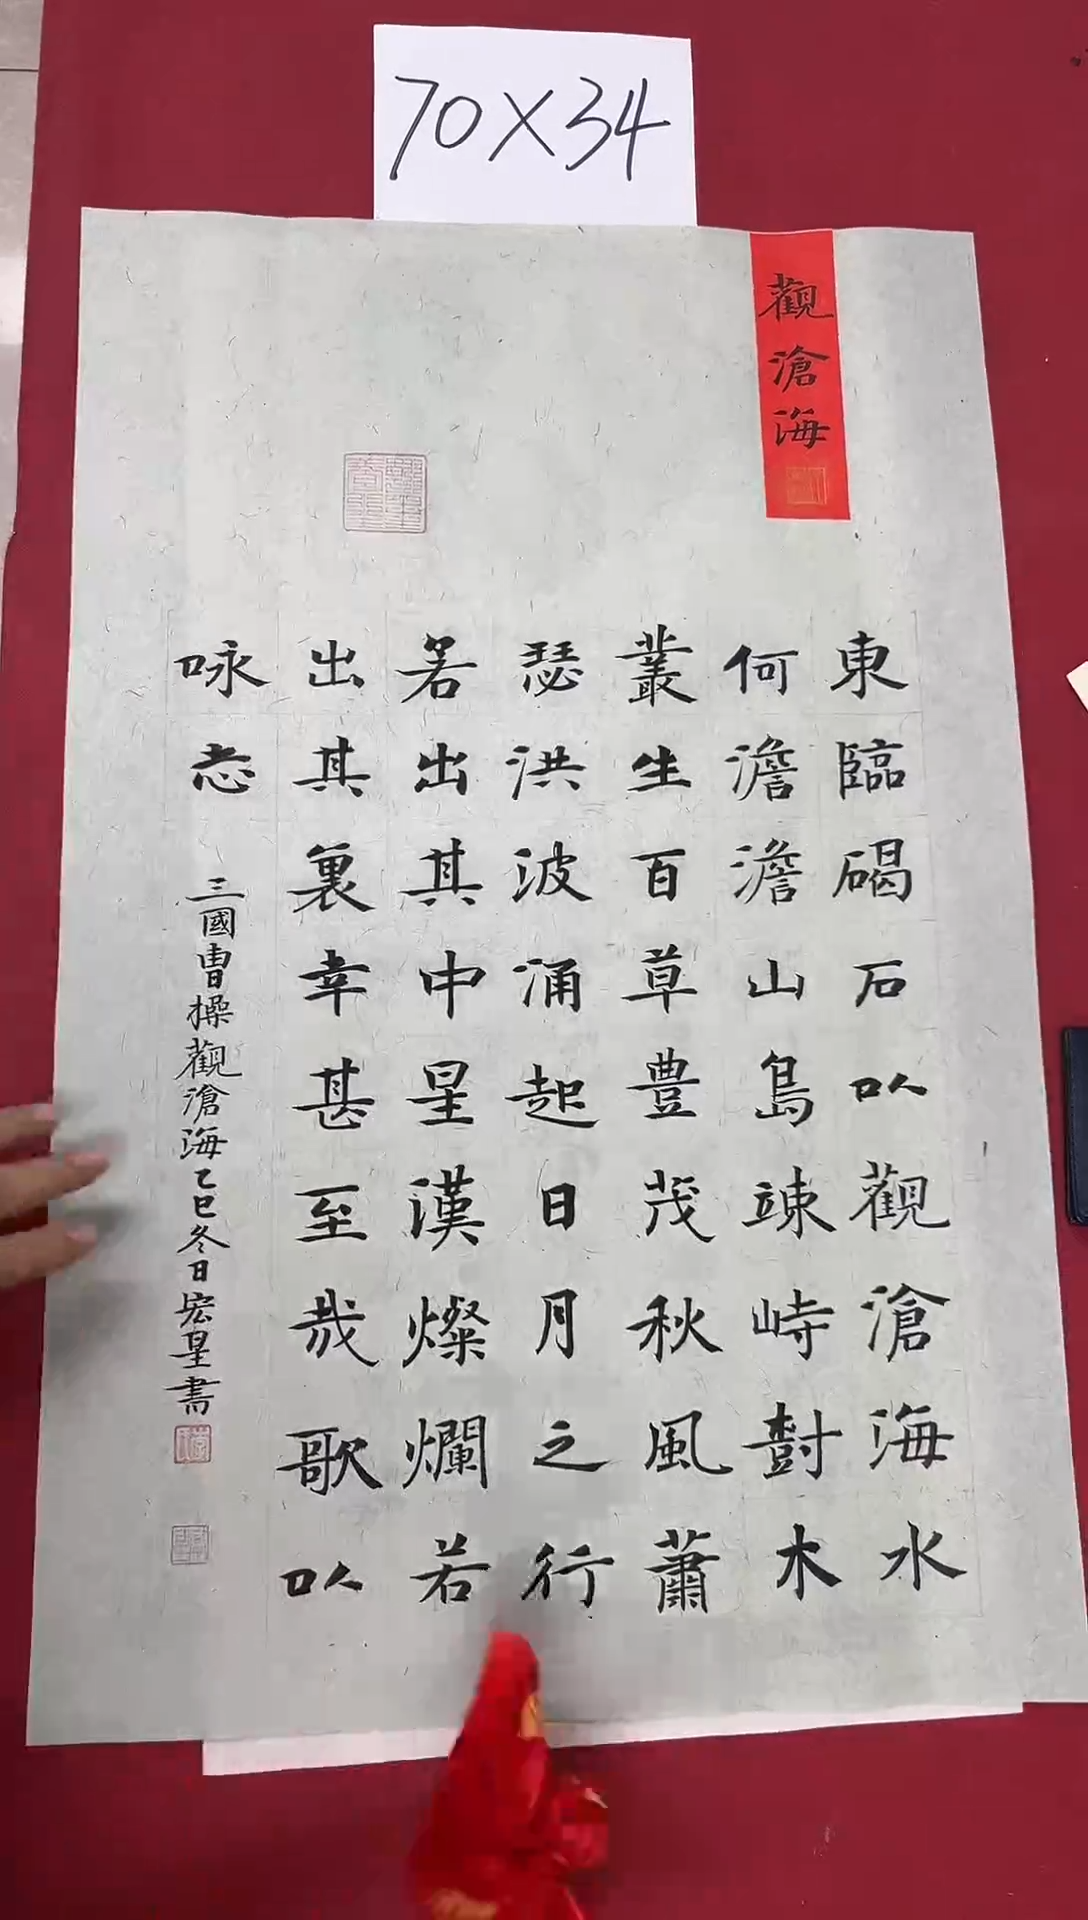 70×34
觀滄海
東臨碣石以觀滄海水
何澹澹山島竦峙樹木
叢生百草豊茂秋風蕭
瑟洪波涌起日月之行
若出其中星漢燦爛若
出其裏幸甚至哉歌以
咏志
三國曹操觀滄海乙巳冬日宏星書